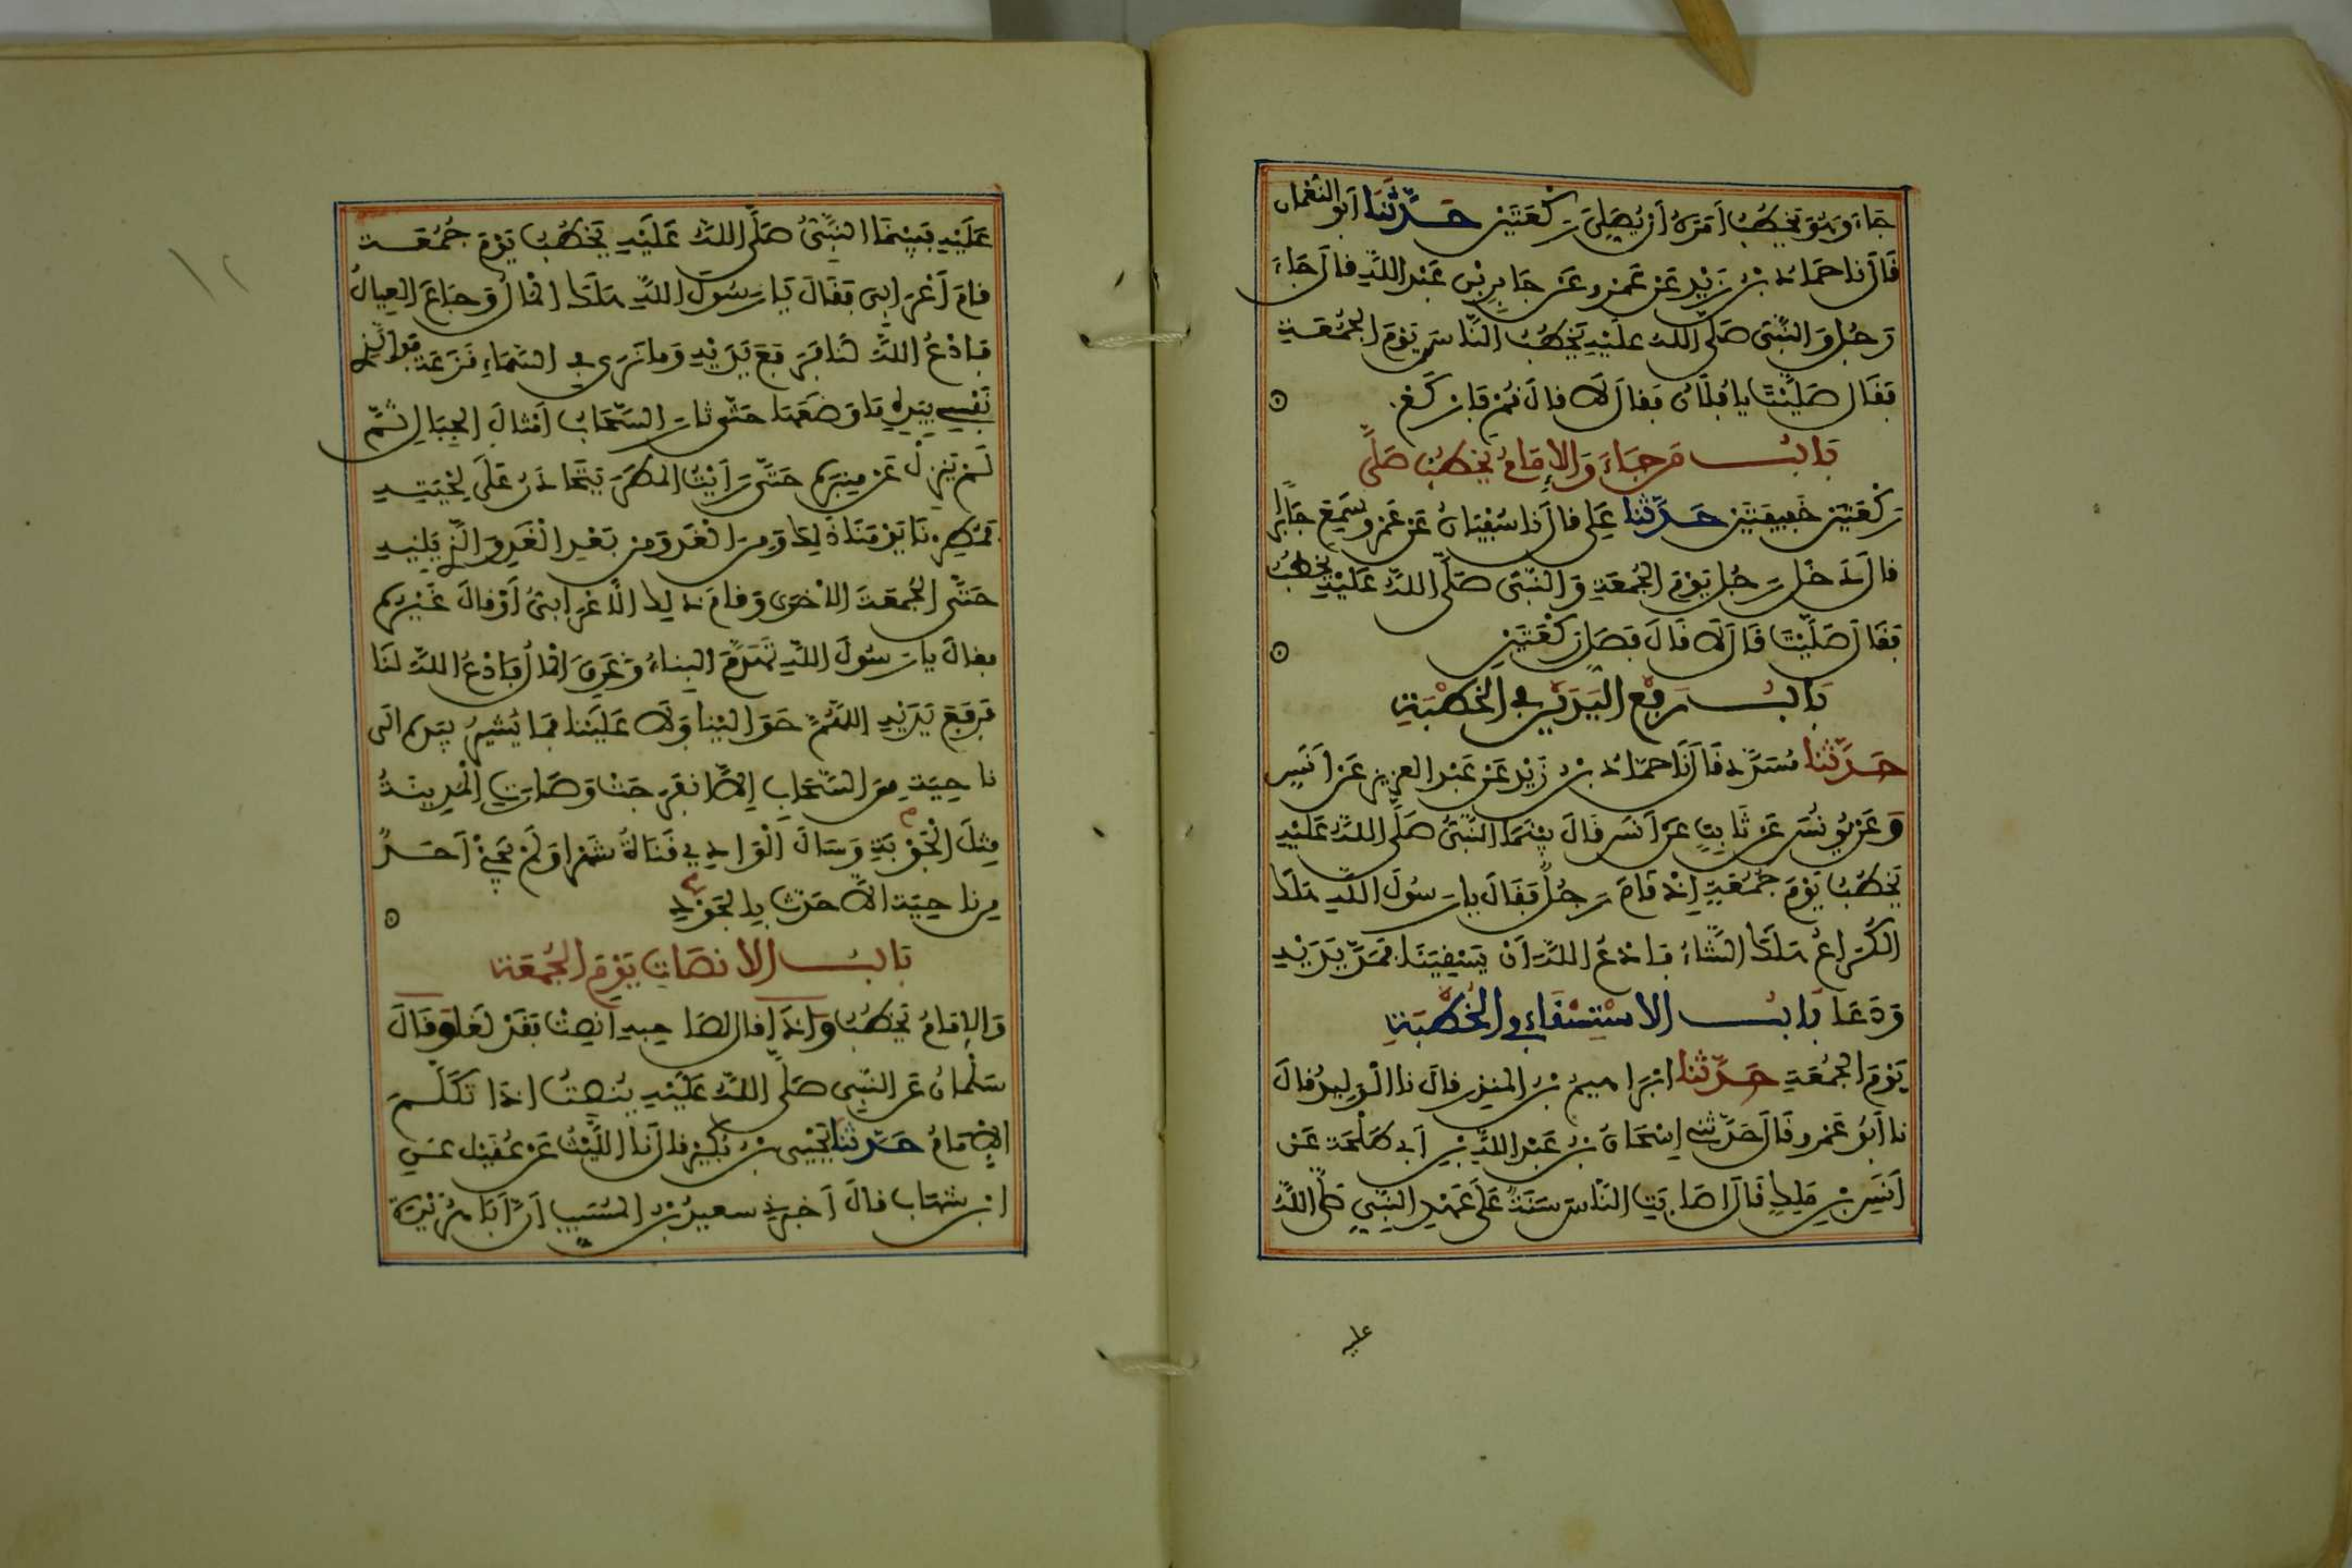 جَاءَ وَهُوَ يَخْطُبُ أَمَرَهُ أَنْ يُصَلِّيَ رَكْعَتَيْنِ حَدَّثَنَا أَبُو النُّعْمَانِ
قَالَ نا حَمَّادُ بْنُ زَيْدٍ عَنْ عَمْرٍو عَنْ جَابِرِ بْنِ عَبْدِ اللَّهِ قَالَ جَاءَ
رَجُلٌ وَالنَّبِيُّ صَلَّى اللَّهُ عَلَيْهِ يَخْطُبُ النَّاسَ يَوْمَ الْجُمُعَةِ
فَقَالَ صَلَّيْتَ يَا فُلَانُ فَقَالَ لَا قَالَ قُمْ فَارْكَعْ
بَابُ مَنْ جَاءَ وَالْإِمَامُ يَخْطُبُ صَلَّى
رَكْعَتَيْنِ خَفِيفَتَيْنِ حَدَّثَنَا عَلِيٌّ قَالَ نا سُفْيَانُ عَنْ عَمْرٍو سَمِعَ جَابِرًا
قَالَ دَخَلَ رَجُلٌ يَوْمَ الْجُمُعَةِ وَالنَّبِيُّ صَلَّى اللَّهُ عَلَيْهِ يَخْطُبُ
فَقَالَ صَلَّيْتَ قَالَ لَا قَالَ فَصَلِّ رَكْعَتَيْنِ
بَابُ رَفْعِ الْيَدَيْنِ فِي الْخُطْبَةِ
حَدَّثَنَا مُسَدَّدٌ قَالَ نَا حَمَّادُ بْنُ زَيْدٍ عَنْ عَبْدِ الْعَزِيزِ عَنْ أَنَسٍ
وَعَنْ يُونُسَ عَنْ ثَابِتٍ عَنْ أَنَسٍ قَالَ بَيْنَمَا النَّبِيُّ صَلَّى اللَّهُ عَلَيْهِ
يَخْطُبُ يَوْمَ جُمُعَةٍ إِذْ قَامَ رَجُلٌ فَقَالَ يَا رَسُولَ اللَّهِ هَلَكَ
الْكُرَاعُ هَلَكَ الشَّاءُ فَادْعُ اللَّهَ أَنْ يَسْقِيَنَا فَمَدَّ يَدَيْهِ
وَدَعَا بَابُ الِاسْتِسْقَاءِ فِي الْخُطْبَةِ
يَوْمَ الْجُمُعَةِ حَدَّثَنَا إِبْرَاهِيمُ بْنُ الْمُنْذِرِ قَالَ نا الْوَلِيدُ قَالَ
نا أَبُو عَمْرٍو قَالَ حَدَّثَنِي إِسْحَاقُ بْنُ عَبْدِ اللَّهِ بْنِ أَبِي طَلْحَةَ عَنْ
أَنَسِ بْنِ مَلِكٍ قَالَ أَصَابَتِ النَّاسَ سَنَةٌ عَلَى عَهْدِ النَّبِيِّ صَلَّى اللَّهُ
عليه
عَلَيْهِ فَبَيْنَمَا النَّبِيُّ صَلَّى اللَّهُ عَلَيْهِ يَخْطُبُ يَوْمَ جُمُعَةٍ
قَامَ أَعْرَابِيٌّ فَقَالَ يَا رَسُولَ اللَّهِ هَلَكَ الْمَالُ وَجَاعَ الْعِيَالُ
فَادْعُ اللَّهَ لَنَا فَرَفَعَ يَدَيْهِ وَمَا نَرَى فِي السَّمَاءِ قَزَعَةً فَوَالَّذِي
نَفْسِي بِيَدِهِ مَا وَضَعَهَا حَتَّى ثَارَ السَّحَابُ أَمْثَالَ الْجِبَالِ ثُمَّ
لَمْ يَنْزِلْ عَنْ مِنْبَرِهِ حَتَّى رَأَيْتُ الْمَطَرَ يَتَحَادَرُ عَلَى لِحْيَتِهِ
فَمُطِرْنَا يَوْمَنَا ذَلِكَ وَمِنَ الْغَدِ وَمِنْ بَعْدِ الْغَدِ وَالَّذِي يَلِيهِ
حَتَّى الْجُمُعَةَ الْأُخْرَى وَقَامَ ذَلِكَ الْأَعْرَابِيُّ أَوْ قَالَ غَيْرُهُ
فَقَالَ يَا رَسُولَ اللَّهِ تَهَدَّمَ الْبِنَاءُ وَغَرِقَ الْمَالُ فَادْعُ اللَّهَ لَنَا
فَرَفَعَ يَدَيْهِ اللَّهُمَّ حَوَالَيْنَا وَلَا عَلَيْنَا فَمَا يُشِيرُ بِيَدِهِ إِلَى
نَاحِيَةٍ مِنَ السَّحَابِ إِلَّا انْفَرَجَتْ وَصَارَتِ الْمَدِينَةُ
مِثْلَ الْجَوْبَةِ وَسَالَ الْوَادِي قَنَاةُ شَهْرًا وَلَمْ يَجِئْ أَحَدٌ
مِنْ نَاحِيَةٍ إِلَّا حَدَّثَ بِالْجَوْدِ
بَابُ الْإِنْصَاتِ يَوْمَ الْجُمُعَةِ
وَالْإِمَامُ يَخْطُبُ وَإِذَا قَالَ لِصَاحِبِهِ أَنْصِتْ فَقَدْ لَغَا وَقَالَ
سَلْمَانُ عَنِ النَّبِيِّ صَلَّى اللَّهُ عَلَيْهِ يُنْصِتُ إِذَا تَكَلَّمَ
الْإِمَامُ حَدَّثَنَا يَحْيَى بْنُ بُكَيْرٍ قَالَ نَا اللَّيْثُ عَنْ عُقَيْلٍ عَنِ
ابْنِ شِهَابٍ قَالَ أَخْبَرَنِي سَعِيدُ بْنُ الْمُسَيَّبِ أَنَّ أَبَا هُرَيْرَةَ